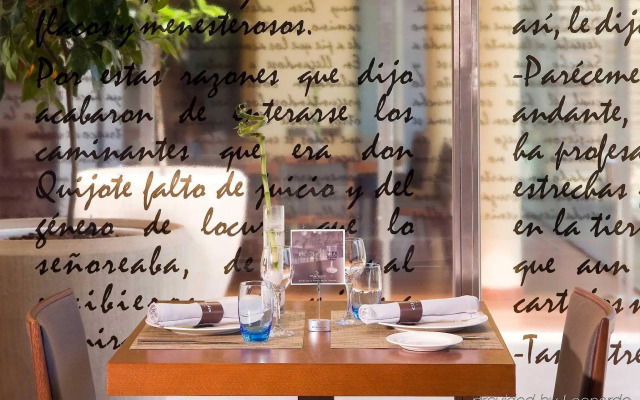 flacos y menesterosos.
Por estas razones que dijo
acabaron de enterarse los
caminantes que era don
Quijote falto de juicio y del
género de locura que lo
señoreaba, de al
recibieron
así, le dijo
-Paréceme
andante,
ha profesa
estrechas
en la tier
que aun
cartujos n
-Tan estre
provided by Leonardo